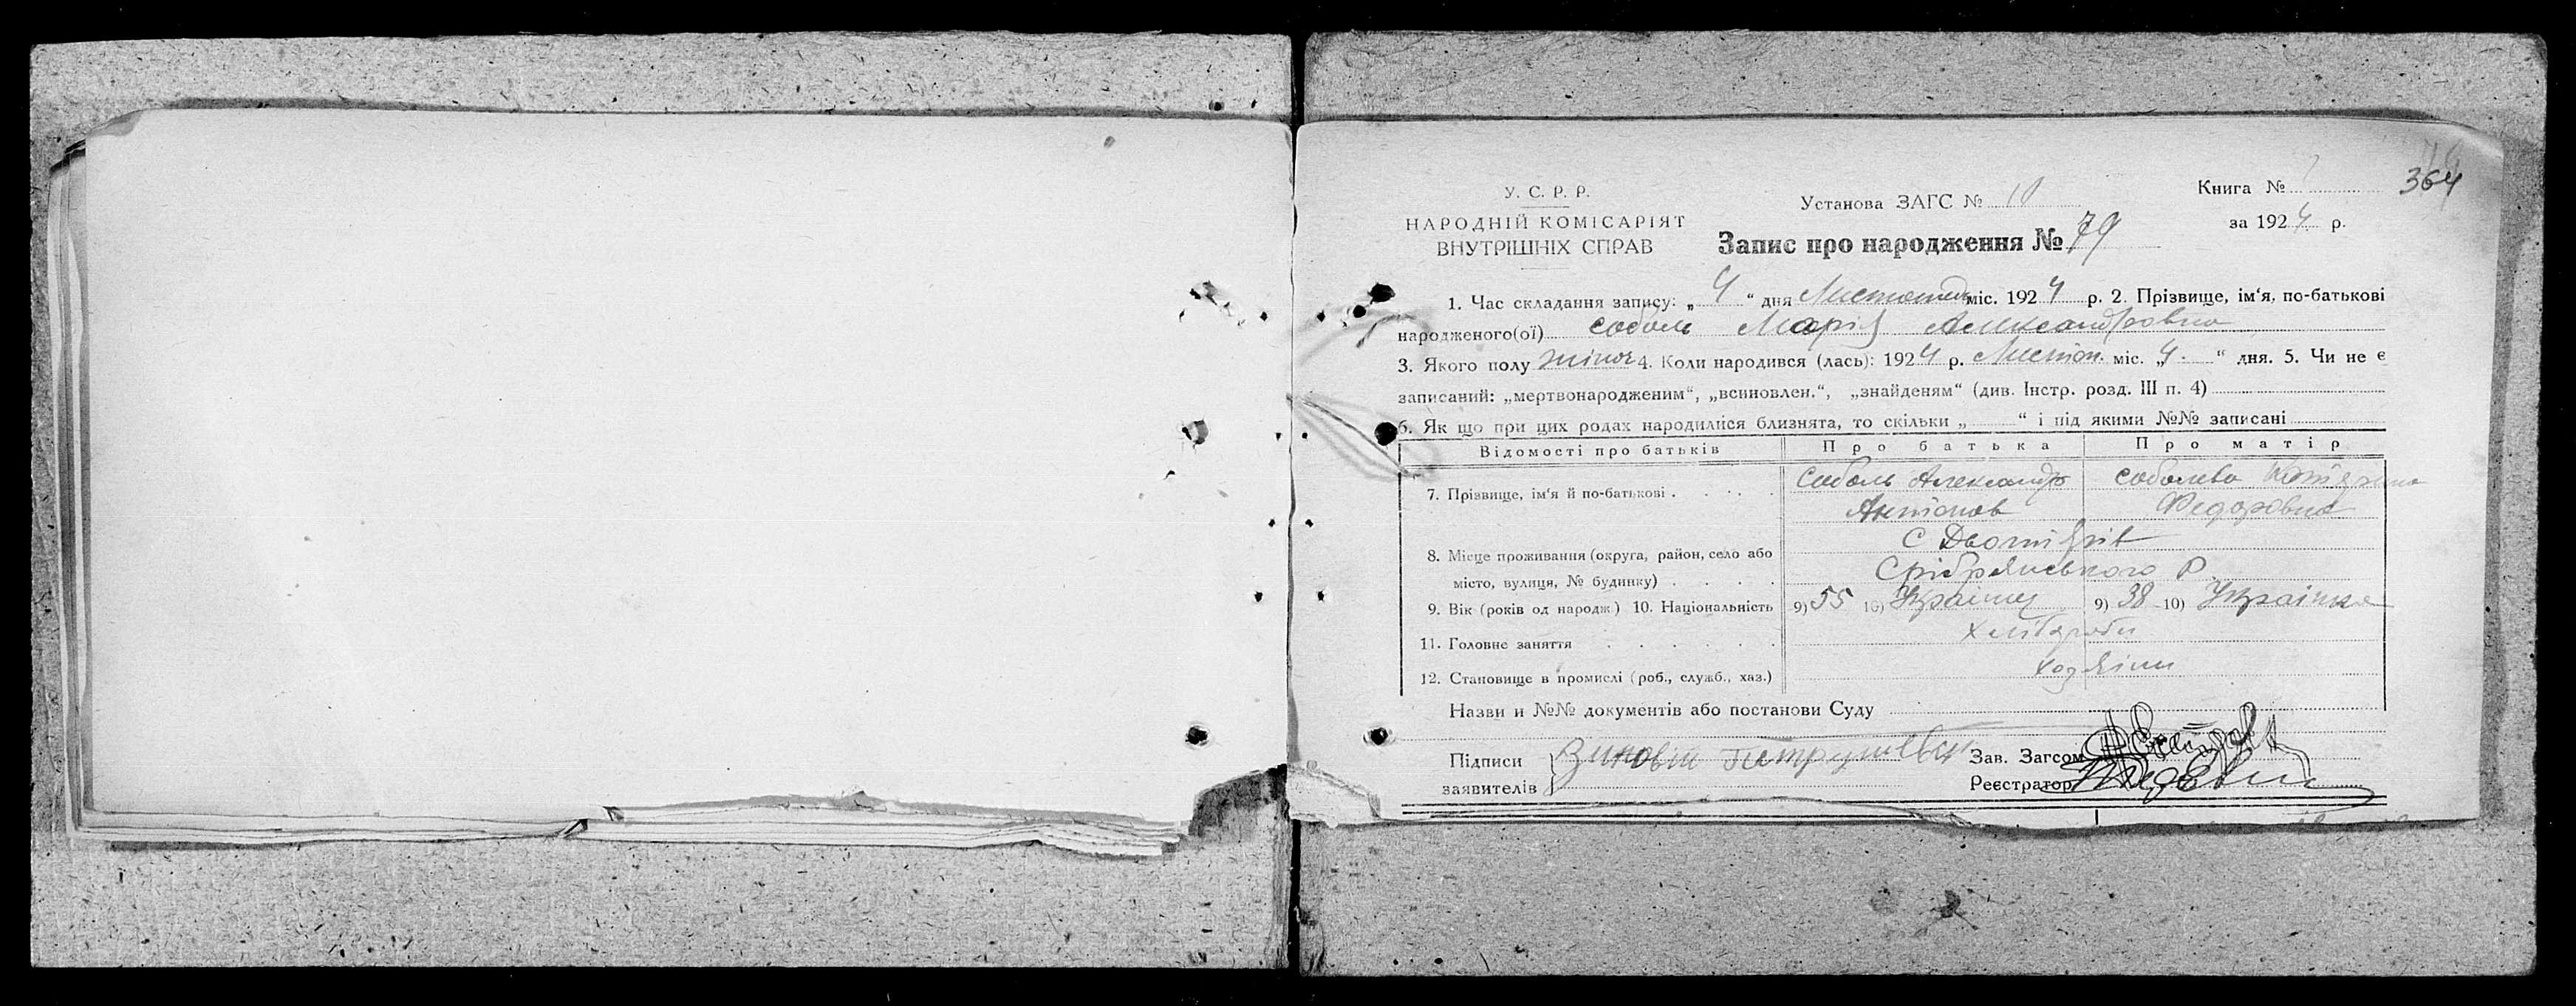 364
У. С. Р. Р.
НАРОДНІЙ КОМІСАРІЯТ
ВНУТРІШНІХ СПРАВ
Установа ЗАГС № 10
Книга №
за 1924 р.
Запис про народження № 79
1. Час складання запису: „ 4 “ дня Листопад міс. 1924 р. 2. Прізвище, ім‘я, по-батькові
народженого(ої) Соболь Марія Александровна
3. Якого полу жіноч 4. Коли народився (лась): 1924 р. Листоп. міс. „4. “ дня. 5. Чи не є
записаний: „мертвонародженим“, „всиновлен.“, „знайденям“ (див. Інстр. розд. III п. 4)
6. Як що при цих родах народилися близнята, то скільки „ “ і під якими №№ записані
Відомості про батьків Про батька Про матір
7. Прізвище, ім‘я й по-батькові . . . . . Соболь Александр Соболева Катерина
Антонов Федоровна
8. Місце проживання (округа, район, село або С
місто, вулиця, № будинку) . . . . Срібрянського Р
9. Вік (років од народж) 10. Національність 9) 55 10) Українец 9) 38 10) Українка
11. Головне заняття . . . . . . Хлібороби
12. Становище в промислі (роб., служб., хаз.) Хозяіни
Назви и №№ документів або постанови Суду
Підписи Зіновій Зав. Загсом
заявителів Реєстратор